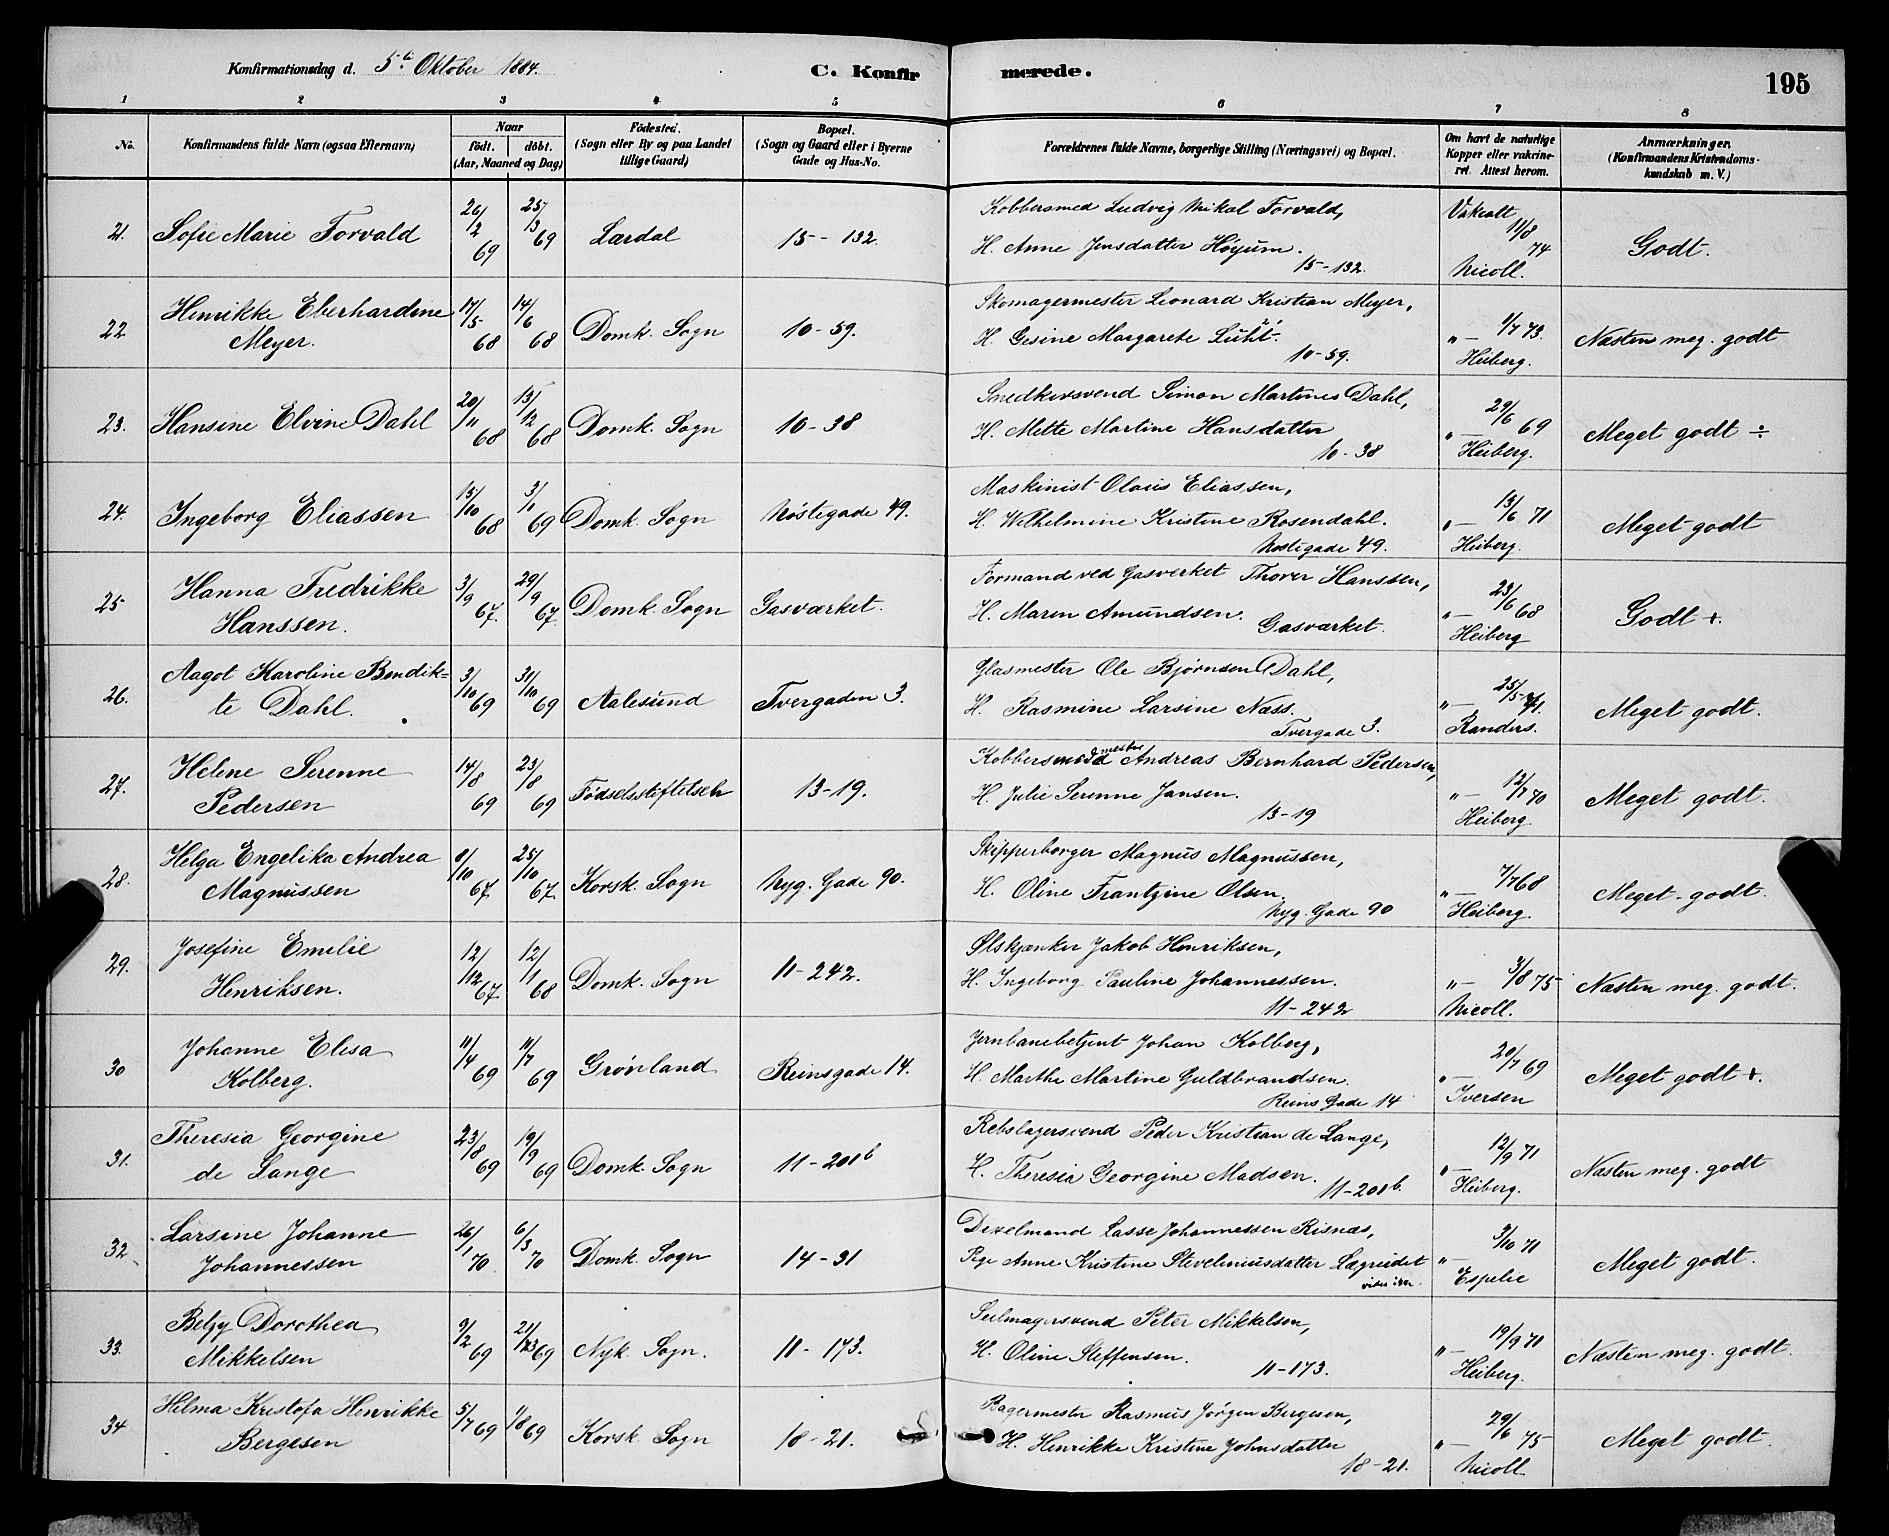 Konfirmationsdag d. 5te Oktober 1884. C. Konfirmerede. 195
1 2 3 4 5 6 7 8
No. Konfirmandens fulde Navn (ogsaa Efternavn) Naar födt. döbt. (Aar, Maaned og Dag) Födested. (Sogn eller By og paa Landet tillige Gaard) Bopæl. (Sogn og Gaard eller i Byerne Gade og Hus-No. Forældrenes fulde Navne, borgerlige Stilling (Næringsvei) og Bopæl. Om havt de naturlige Kopper eller vakcineret. Attest herom. Anmærkninger. (Konfirmandens Kristendomskundskab m. V.)
21. Sofie Marie Forvald 26/2 69 25/3 69 Lærdal 15-132. Kobbersmed Ludvig Mikal Forvald, Vakcatt 11/8 74 Godt.
H. Anne Jensdatter Høyum. 15-132. Nicoll.
22 Henrikke Eberhardine Meyer. 17/5 68 14/6 68 Domk. Sogn 10-59. Skomagermester Leonard Kristian Meyer, „— 1/7 73. Næsten meg. godt
H. Gesine Margarete Lühr. 10-59. Heiberg.
23. Hansine Elvine Dahl 20/11 68 13/12 68 Domk. Sogn 10-38 Snedkersvend Simon Martines Dahl, „— 29/6 69 Meget godt ÷
H. Mette Martine Hansdatter 10-38 Heiberg.
24. Ingeborg Eliassen 15/10 68 3/1 69 Domk. Sogn Nöstegade 49. Maskinist Olaus Eliassen, „— 13/6 71 Meget godt
H. Wilhelmine Kristine Rosendahl. Nöstegade 49. Heiberg.
25. Hanna Fredrikke Hanssen. 3/9 67. 29/9 67. Domk. Sogn Gasværket. Formand ved Gasverket Thorer Hanssen, „— 23/6 68 Godt +.
H. Maren Amundsen. Gasværket. Heiberg
26. Aagot Karoline Bendikte Dahl. 3/10 69 31/10 69 Aalesund Tvergaden 3. Glasmester Ole Bjørnsen Dahl, „— 25/5 71. Meget godt.
H. Rasmine Larsine Næss. Tvergade 3. Randers.
27. Helene Serenne Pedersen 14/8 69 23/8 69 Fødselsstiftelsen 13-19. Kobbersmedmester Andreas Bernhard Pedersen, „— 12/7 70 Meget godt.
H. Julie Serenne Jansen. 13-19 Heiberg
28. Helga Engelika Andrea Magnussen 8/10 67 25/10 67. Korsk. Sogn Nyg. Gade 90. Skipperborger Magnus Magnussen, „— 7/7 68 Meget godt.
H. Oline Frantzine Olsen. Nyg. Gade 90 Heiberg.
29. Josefine Emilie Henriksen. 12/12 67. 12/1 68 Domk. Sogn 11-242. Ølskjænker Jakob Henriksen, „— 3/8 75 Næsten meg. godt.
H. Ingeborg Pauline Johannessen. 11-242 Nicoll.
30 Johanne Elisa Kolberg. 11/4 69 11/7 69 Grønland Reinsgade 14. Jernbanebetjent Johan Kolberg, „— 20/7 69 Meget godt +.
H. Marthe Martine Guldbrandsen. Reins Gade 14 Iversen
31. Theresia Georgine de Lange 23/8 69 19/9 69 Domk. Sogn 11-201b Rebslagersvend Peder Kristian de Lange, „— 12/9 71 Næsten meg. godt
H. Theresia Georgine Madsen. 11-201b. Heiberg.
32. Larsine Johanne Johannessen 26/1 70. 6/3 70 Domk. Sogn 14-31 Dexelmand Lasse Johannessen Risnæs, „— 9/10 71 Meget godt.
Pige Anne Kristine Steveliniusdatter Lægreidet Espelie
33. Betzy Dorothea Mikkelsen 9/2 69 21/3 69 Nyk. Sogn. 11-173. Seilmagersvend Peter Mikkelsen, „— 19/9 71 Næsten meg. godt.
H. Oline Steffensen. 11-173. Heiberg.
34 Helma Kristofa Henrikke Bergesen 5/7 69 1/8 69 Korsk. Sogn 18-21. Bagermester Rasmus Jørgen Bergesen, „— 29/6 75 Meget godt.
H. Henrikke Kristine Johnsdatter 18-21. Nicoll